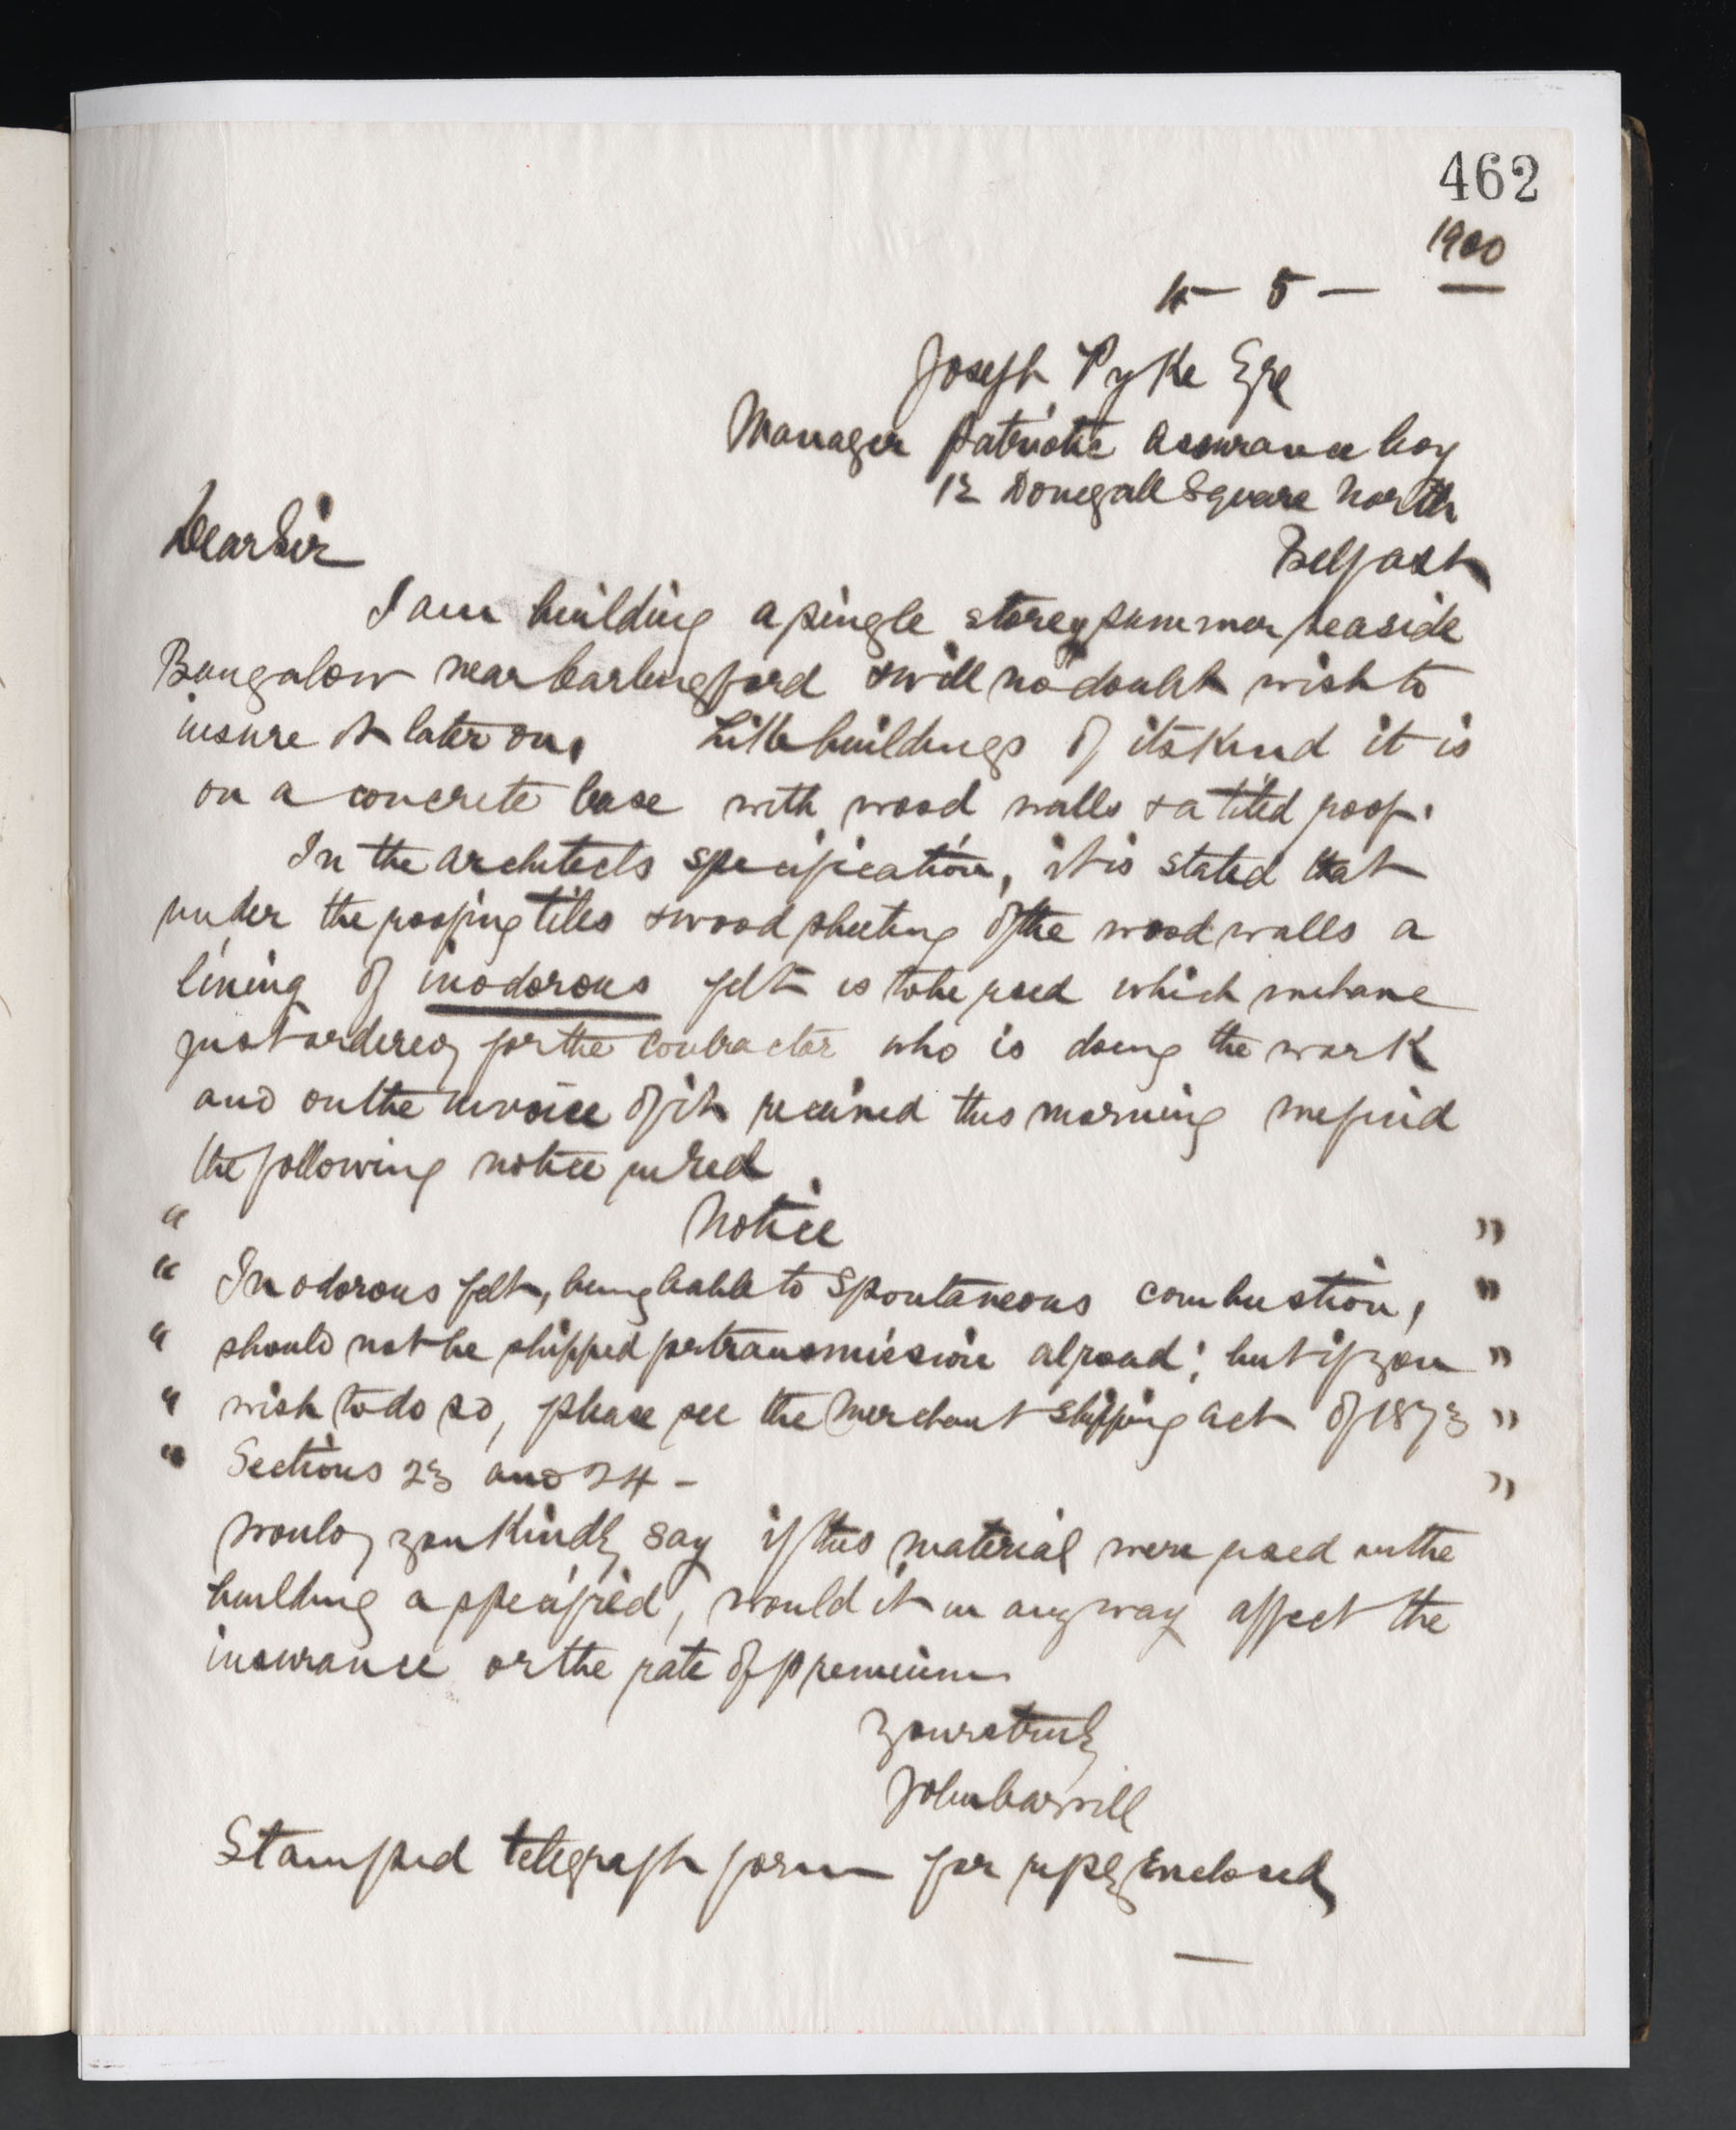 462
1900
4 - 5 -
Joseph Pyke Esq
Manager Patriotic Assurance Coy
12 Donegall Square North
Belfast
Dear Sir
I am building a single storey summer seaside
Bungalow near Carlingford & will no doubt wish to
insure it later on. Like buildings of its kind it is
on a concrete base with wood walls & a tiled roof.
In the architects specification, it is stated that
under the roofing tiles & wood sheeting of the wood walls a
lining of inodorous felt is to be used which we have
just ordered for the contractor who is doing the work
and on the invoice of it received this morning we find
the following notice in red
" Notice "
" Inodorous felt, being liable to spontaneous combustion, "
" should not be shipped for transmission abroad; but if you "
" wish to do so, please see the Merchant Shipping Act of 1873 "
" Sections 23 and 24 - "
Would you kindly say if this material were used in the
building a specified, would it in any way affect the
insurance or the rate of premium
Yours truly
John Carvill
Stamped telegraph form for reply Enclosed